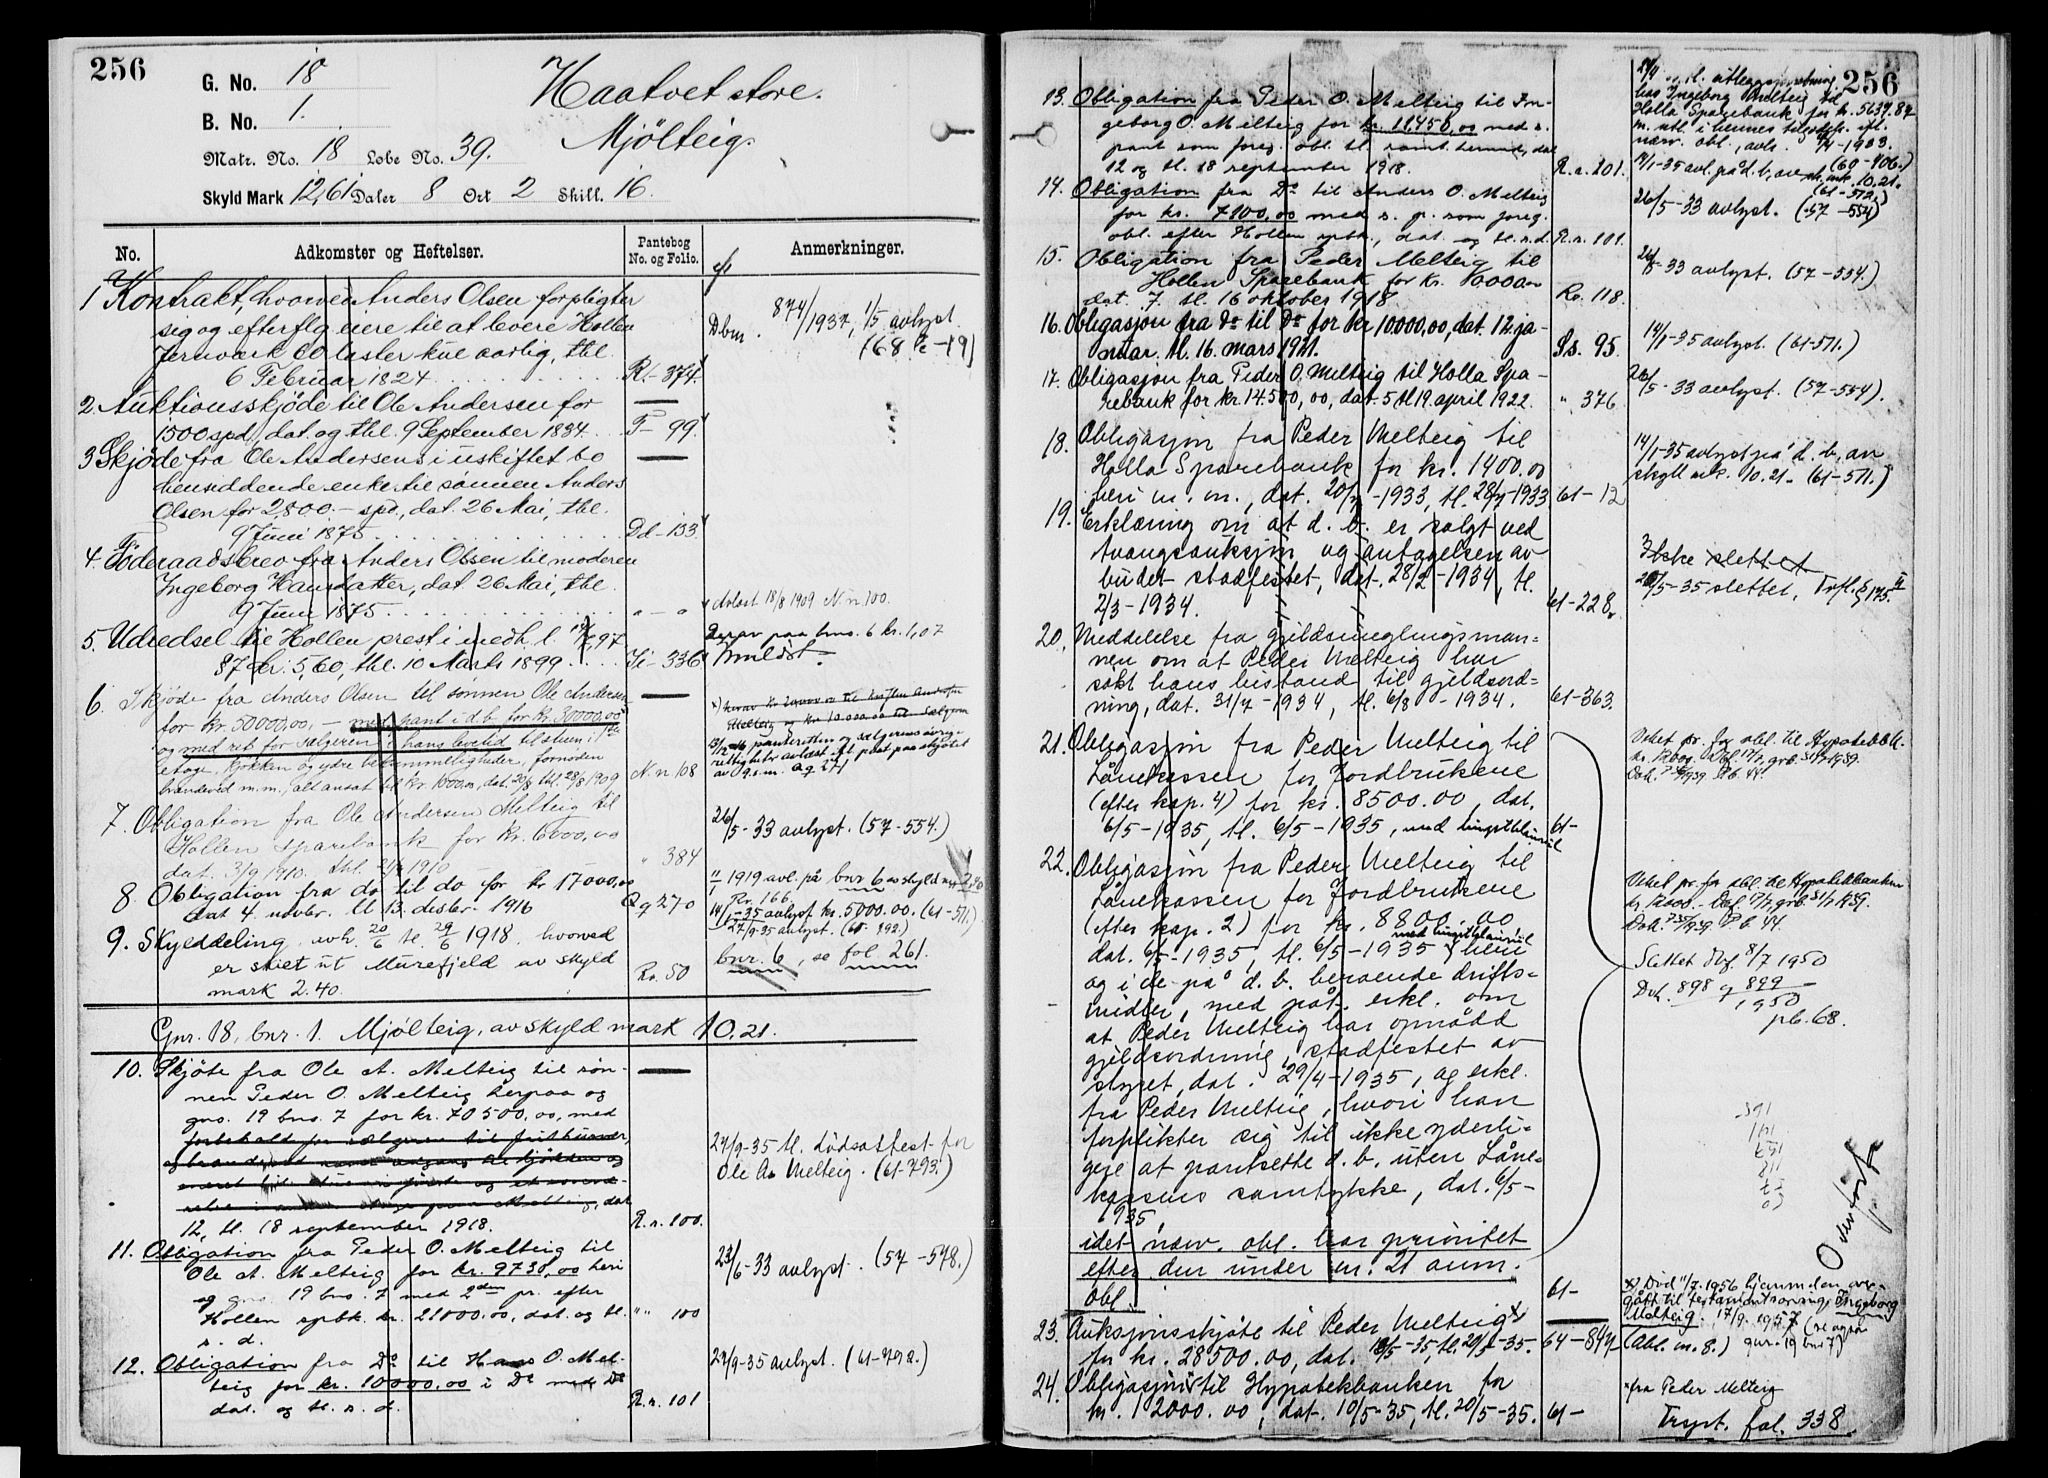 256
G. No. 18
B. No. 1.
Haatvet store.
Mjölteig.
Matr. No. 18 Lobe No. 39.
Skyld Mark 12,61 Daler 8 Ort 2 Skill. 16.
No. Adkomster og Heftelser. Pantebog No. og Folio. Anmerkninger.
1 Kontrakt, hvorved Anders Olsen forpligter
sig og efterflg. eiere til at levere Hollen
Jernværk 60 læster kul aarlig, thl.
6 Februar 1824 R1- 374.
Dbm. 874/1937, 1/5 avlyst
2 Auktionsskjöde til Ole Andersen for
1500 spd., dat. og thl. 9 September 1834. F- 99.
3 Skjöde fra Ole Andersens i uskiftet bo
hensiddende enke til sönnen Anders
Olsen for 2800.- spd., dat. 26 Mai, thl.
9 Juni 1875 Dd-133.
4. Föderaadsbrev fra Anders Olsen til moderen
Ingeborg Hansdatter, dat. 26 Mai, thl.
9 Juni 1875 "-"
Avlöst 18/8 1909 N.n.100.
5. Udredsel til Hollen prest i medh. l. 14/7 97
87 kr. 5,60, thl. 10 Marts 1899 Ii- 336
Derav paa bno. 6 kr. 1,07
Avlöst.
6 Skjöde fra Anders Olsen til sönnen Ole Andersen
for kr. 50000,00, - med pant i d.b. for kr. 30000,00
og med ret for sælgeren i hans levetid til stuen i 1ste
etage, kjökken og ydre bekvemmeligheder, fornöden
brændeved m.m., alt ansat til kr. 1000,00, dat. 20/8 thl. 28/8 1909 N.n 108
7. Obligation fra Ole Andersen Melteig til
Hollen sparebank for kr. 6000,00
dat. 3/9 1910. thl. 1910 " 384
26/5-33 avlyst. (57-554.)
8. Obligation fra do til do for kr 17000,00
dat 4. novbr. tl 13. desbr. 1916 Qq 270
11/1 1919 avl. på bnr 6 av skyld mrk 2.40
Rr. 166.
14/1-35 avlyst kr. 5000.00. (61-571.)
27/9-35 avlyst. (61- 792.)
9. Skylddeling avh. 20/6 tl. 29/6 1918, hvorved
er skilt ut Murefjeld av skyld
mark 2.40. Rr. 50
bnr. 6, se fol. 261.
Gnr. 18, bnr. 1. Mjölteig, av skyld mark 10.21.
10. Skjöte fra Ole A. Melteig til søn-
nen Peder O. Melteig herpaa og
gno. 19 bno. 7 for kr. 70500,00, med
12, tl. 18 september 1918. R.r. 100.
27/9-35 tl. dödsattest for
Ole A. Melteig. (61-793.)
11. Obligation fra Peder O. Melteig til
Ole A. Melteig for kr. 9730,00 heri
og gno. 19 bno. 7 med 2den pr. efter
Hollen spbk. kr. 21000.00, dat. og tl.
s. d. "" 100
23/6-33 avlyst. (57-578.)
12. Obligation fra Do til Hans O. Mel-
teig for kr. 10000.00 i Do med Do
dat. og tl. s. d. R.r. 101
27/9-35 avlyst. (61-792.)
256
13. Obligation fra Peder O. Melteig til In-
geborg O. Melteig for kr. 11450,00 med s.
pant som foreg. obl. tl. samt. hermed, dat
12 og tl. 18 september 1918. R.r. 101.
tl. utleggsforretning
hos Ingeborg Melteig til
Holla Sparebank for kr. 5639.87
14. Obligation fra Do til Anders O. Melteig
for kr. 7100.00 med s. p. som foreg.
obl. efter Hollen spbk., dat. og tl. s.d. R.r. 101.
26/5-33 avlyst. (57-554)
15. Obligation fra Peder Melteig til
Hollen Sparebank for kr. 10000.00
dat. 7. tl. 16 oktober 1918 Rr. 118.
26/5-33 avlyst. (57-554.)
16. Obligasjon fra Do til Do for kr 10000,00, dat. 12 ja-
nuar. tl. 16. mars 1921. Ss. 95.
14/1-35 avlyst. (61-571.)
17. Obligasjon fra Peder O. Melteig til Holla Spa-
rebank for kr. 14.500,00, dat. 5 tl 19. april 1922. " 376
26/5-33 avlyst. (57-554).
18. Obligasjon fra Peder Melteig til
Holla Sparebank for kr. 1400.00
heri m. m., dat. 20/7-1933, tl. 28/7-1933 61-12
14/1-35 avlyst på d. b., av
skyld mk. 10.21. (61-571.)
19. Erklæring om at d. b. er solgt ved
tvangsauksjon og antagelsen av
budet stadfestet, dat. 28/2-1934, tl.
2/3-1934. 61-228
Ikke slettet
20/5-35 slettet.
20. Meddelelse fra gjeldsmeglingsman-
nen om at Peder Melteig har
søkt hans bistand til gjeldsord-
ning, dat. 31/7-1934, tl. 6/8-1934. 61-363.
21. Obligasjon fra Peder Melteig til
Lånekassen for Jordbrukere
(efter kap. 4) for kr. 8500.00, dat.
6/5-1935, tl. 6/5-1935, med tingstklausul 61-
Veket pr. for obl. til Hypotekbk.
22. Obligasjon fra Peder Melteig til
Lånekassen for Jordbrukere
(efter kap. 2) for kr. 8800.00
med tingstklausul
dat. 6/5-1935, tl. 6/5-1935 heri
og i de på d. b. beroende drifts-
midler, med påt. erkl. om
at Peder Melteig har opnådd
gjeldsordning, stadfestet av
styret, dat. 29/4-1935, og erkl.
fra Peder Melteig, hvori han
forplikter sig til ikke yderli-
gere at pantsette d. b. uten Låne-
kassens samtykke, dat. 6/5-
1935,
idet nærv. obl. har prioritet
efter den under nr. 21 anm.
obl. 61-
Veket pr. for obl. til Hypotekbanken
Slettet Dbf. 8/7 1950
Dok. 898 og 899
1950
pb. 68.
Overført
23. Auksjonsskjöte til Peder Melteig x)
for kr. 28500.00, dat. 10/5-35, tl. 20/5-35. 64-842
x) Død 11/7.1956 hjemmelen over-
gått til testamentsarving: Ingeborg
Melteig. 17/9.1957 (se også
(Abl. nr. 8.) gnr. 19 bnr 7)
24. Obligasjon x til Hypotekbanken for
kr. 12000.00, dat. 10/5-35, tl. 20/5-35. 61-
x fra Peder Melteig
Trgst. fol. 338.